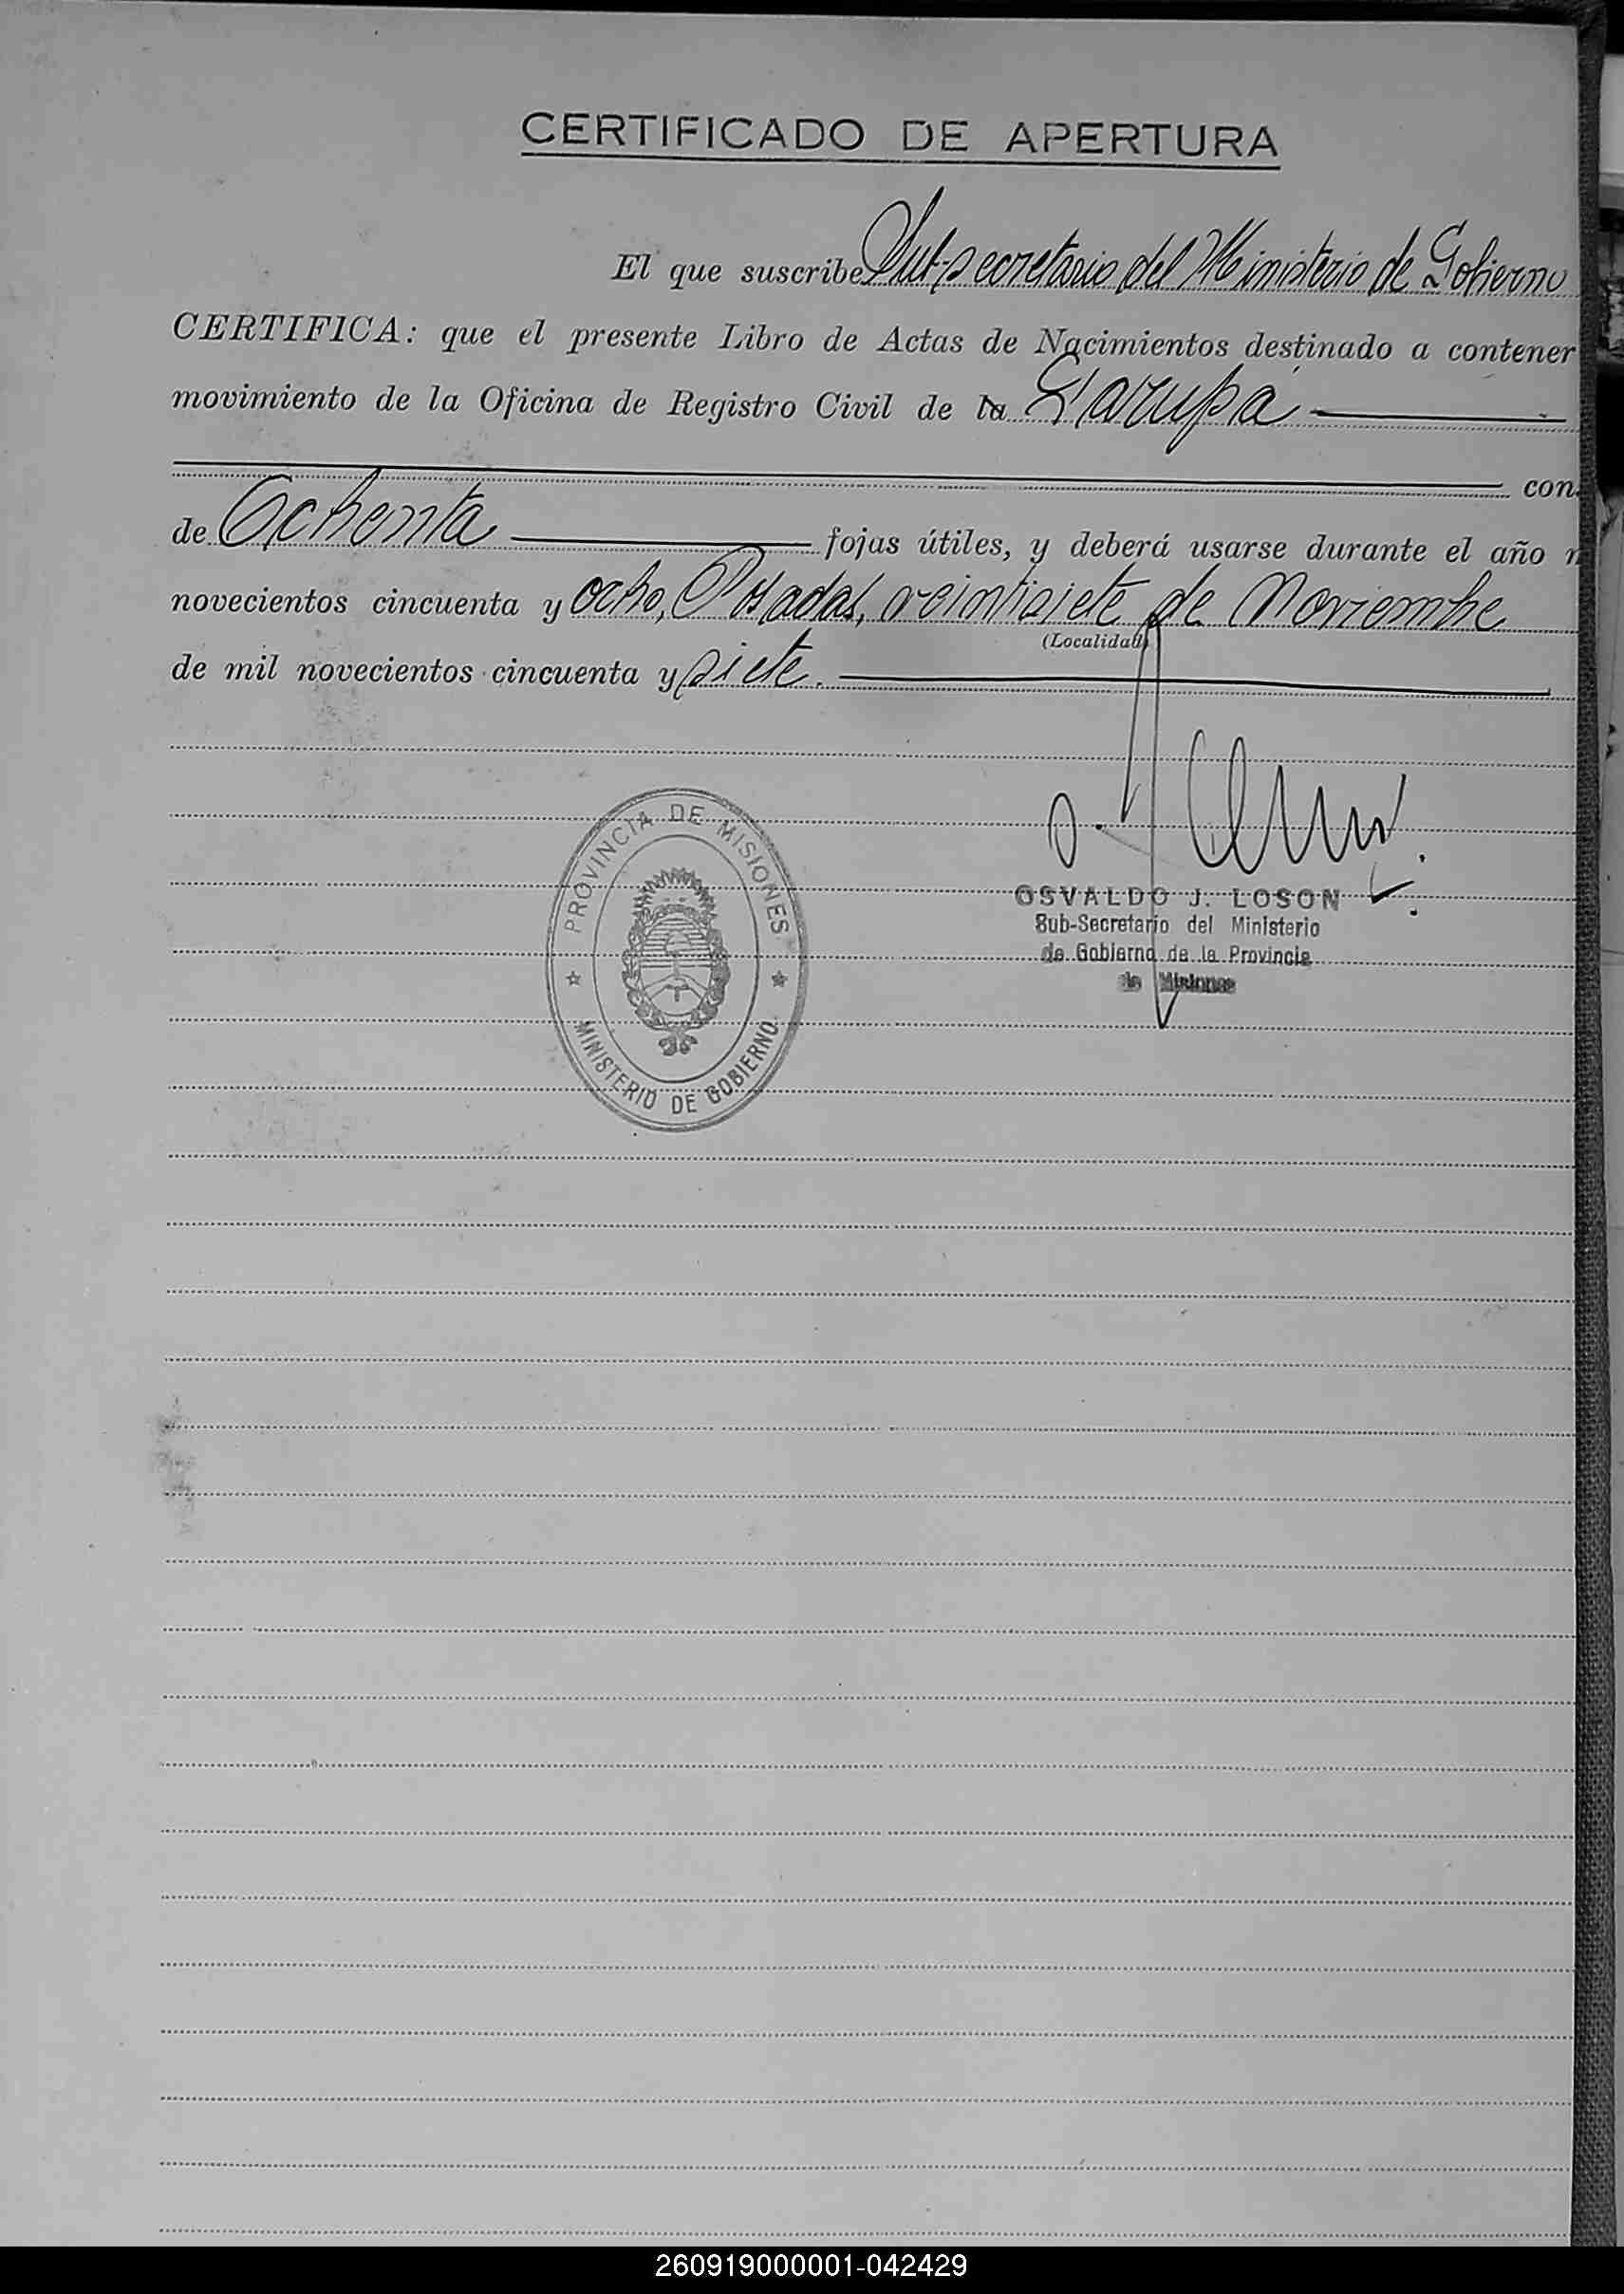 CERTIFICADO DE APERTURA
El que suscribe Sub-secretario del Ministerio de Gobierno
CERTIFICA: que el presente Libro de Actas de Nacimientos destinado a contener
movimiento de la Oficina de Registro Civil de la Garupá
con
de Ochenta fojas útiles, y deberá usarse durante el año
novecientos cincuenta y ocho, Posadas, veintisiete de Noviembre
(Localidad)
de mil novecientos cincuenta y siete.
PROVINCIA DE MISIONES
MINISTERIO DE GOBIERNO
OSVALDO J. LOSON
Sub-Secretario del Ministerio
de Gobierno de la Provincia
de Misiones
260919000001-042429